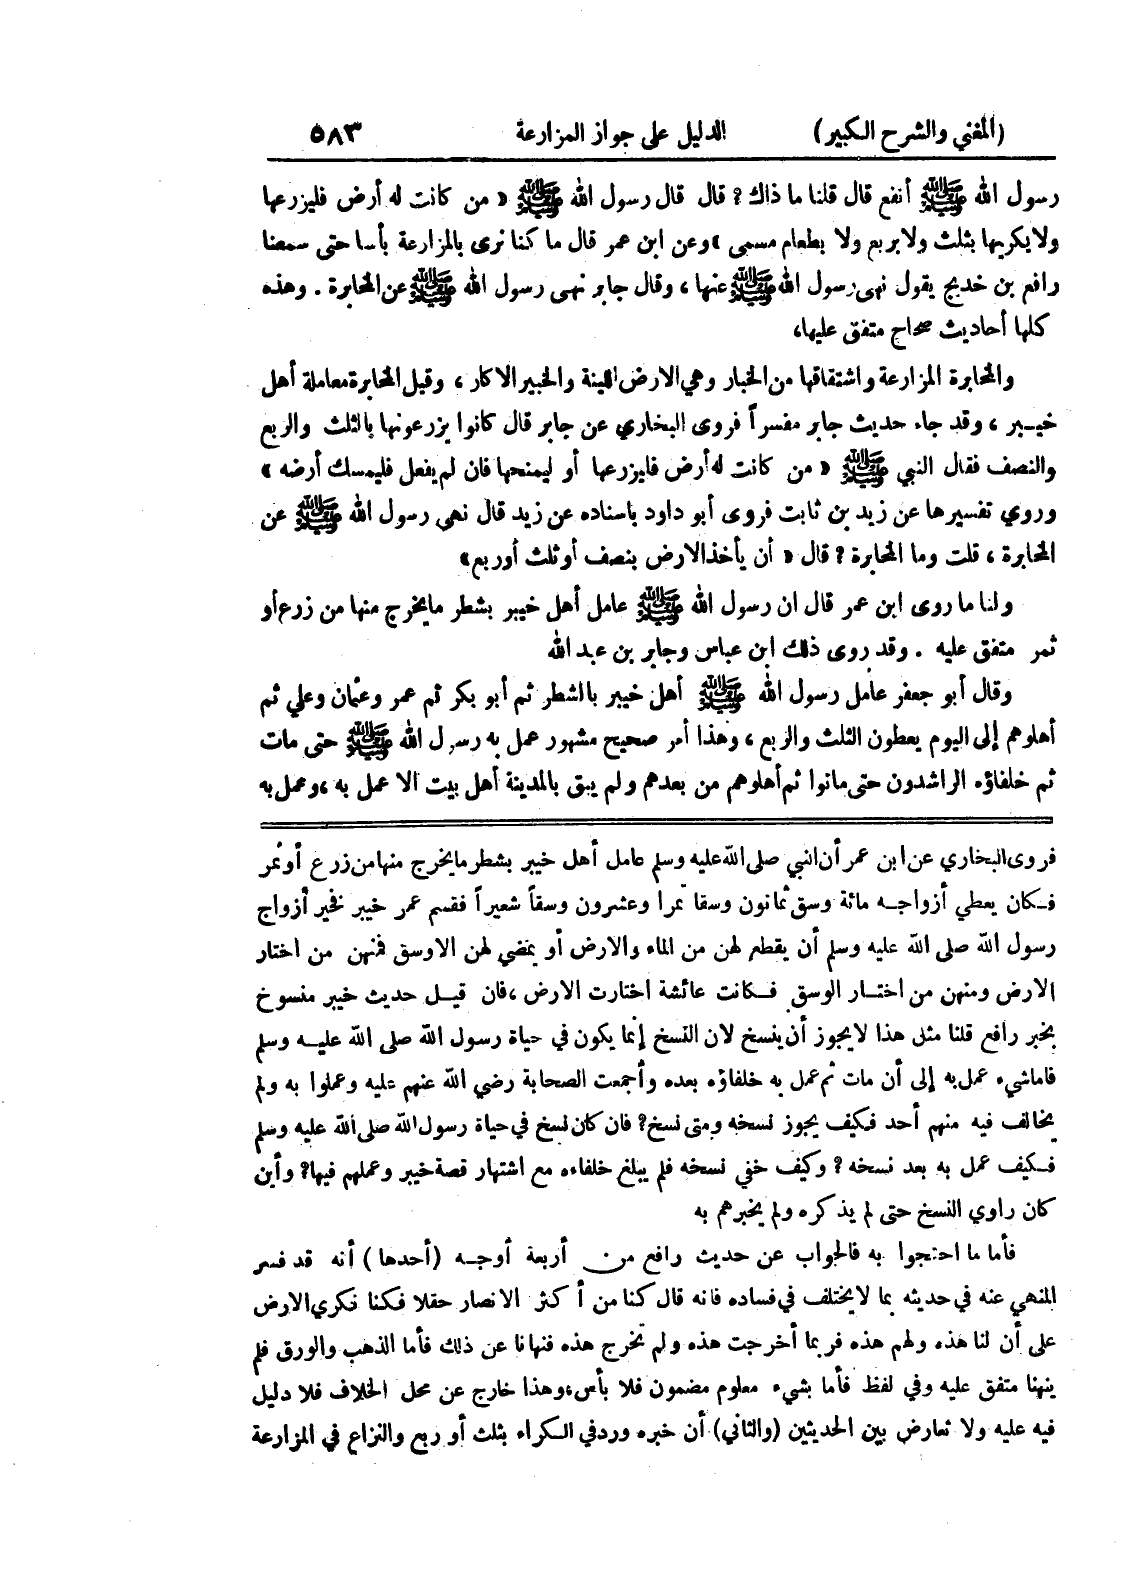 (المغني والشرح الكبير) الدليل على جواز المزارعة ٥٨٣
رسول الله ﷺ أنفع قال قلنا ما ذاك؟ قال قال رسول الله ﷺ « من كانت له أرض فليزرعها
ولا يكريها بثلث ولا بربع ولا بطعام مسمى » وعن ابن عمر قال ما كنا نرى بالمزارعة بأسا حتى سمعنا
رافع بن خديج يقول نهى رسول الله ﷺ عنها ، وقال جابر نهى رسول الله ﷺ عن المخابرة . وهذه
كلها أحاديث صحاح متفق عليها،
والمخابرة المزارعة واشتقاقها من الخبار وهي الارض اللينة والخبير الاكار ، وقيل المخابرة معاملة أهل
خيبر ، وقد جاء حديث جابر مفسراً فروى البخاري عن جابر قال كانوا يزرعونها بالثلث والربع
والنصف فقال النبي ﷺ « من كانت له أرض فليزرعها أو ليمنحها فان لم يفعل فليمسك أرضه »
وروي تفسيرها عن زيد بن ثابت فروى أبو داود باسناده عن زيد قال نهى رسول الله ﷺ عن
المخابرة ، قلت وما المخابرة ؟ قال « أن يأخذ الارض بنصف أو ثلث أو ربع»
ولنا ما روى ابن عمر قال ان رسول الله ﷺ عامل أهل خيبر بشطر ما يخرج منها من زرع أو
ثمر متفق عليه . وقد روى ذلك ابن عباس وجابر بن عبد الله
وقال أبو جعفر عامل رسول الله ﷺ أهل خيبر بالشطر ثم أبو بكر ثم عمر وعثمان وعلي ثم
أهلوهم إلى اليوم يعطون الثلث والربع ، وهذا أمر صحيح مشهور عمل به رسول الله ﷺ حتى مات
ثم خلفاؤه الراشدون حتى ماتوا ثم أهلوهم من بعدهم ولم يبق بالمدينة أهل بيت الا عمل به ،وعمل به
فروى البخاري عن ابن عمر أن النبي صلى الله عليه وسلم عامل أهل خيبر بشطر ما يخرج منها من زرع أو ثمر
فكان يعطي أزواجه مائة وسق ثمانون وسقا تمرا وعشرون وسقاً شعيراً فقسم عمر خيبر فخير أزواج
رسول الله صلى الله عليه وسلم أن يقطع لهن من الماء والارض أو يمضي لهن الاوسق فمنهن من اختار
الارض ومنهن من اختار الوسق فكانت عائشة اختارت الارض ،فان قيل حديث خيبر منسوخ
بخبر رافع قلنا مثل هذا لا يجوز أن ينسخ لان النسخ إنما يكون في حياة رسول الله صلى الله عليه وسلم
فاما شيء عمل به إلى أن مات ثم عمل به خلفاؤه بعده وأجمعت الصحابة رضي الله عنهم عليه وعملوا به ولم
يخالف فيه منهم أحد فكيف يجوز نسخه ومتى نسخ؟ فان كان نسخ في حياة رسول الله صلى الله عليه وسلم
فكيف عمل به بعد نسخه ؟ وكيف خفي نسخه فلم يبلغ خلفاءه مع اشتهار قصة خيبر وعملهم فيها؟ وأين
كان راوي النسخ حتى لم يذكره ولم يخبرهم به
فأما ما احتجوا به فالجواب عن حديث رافع من أربعة أوجه (أحدها) أنه قد فسر
المنهي عنه في حديثه بما لا يختلف في فساده فانه قال كنا من أكثر الانصار حقلا فكنا نكري الارض
على أن لنا هذه ولهم هذه فربما أخرجت هذه ولم تخرج هذه فنهانا عن ذلك فأما الذهب والورق فلم
ينهنا متفق عليه وفي لفظ فأما بشيء معلوم مضمون فلا بأس،وهذا خارج عن محل الخلاف فلا دليل
فيه عليه ولا تعارض بين الحديثين (والثاني) أن خبره ورد في الكراء بثلث أو ربع والنزاع في المزارعة